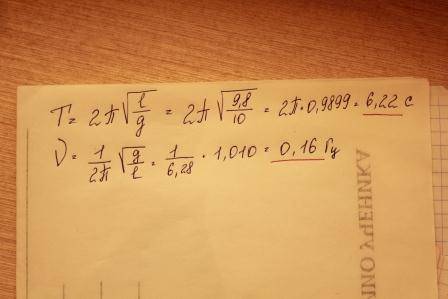 T = 2π√(l/g) = 2π√(9,8/10) = 2π·0,9899 = 6,22 с
ν = 1/2π √(g/l) = 1/6,28 · 1,010 = 0,16 Гц
УЧЕНИКА